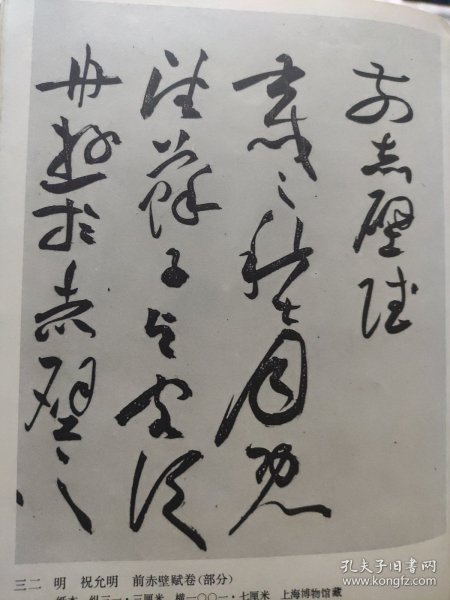 前赤壁賦
壬戌之秋七月既
望蘇子與客泛
舟遊於赤壁之
三二 明 祝允明 前赤壁赋卷(部分)
纸本 纵三一·三厘米 横一〇〇一·七厘米 上海博物馆藏
孔夫子旧书网